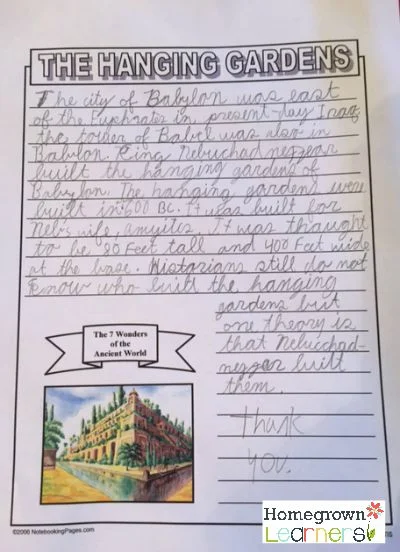 THE HANGING GARDENS
The city of Babylon was east
of the Euphrates in, present-day Iraq
the tower of Babel was also in
Babylon. King Nebuchadnezzear
built the hanging gardens of
Babylon. The hanging gardens were
built in 600 BC. It was built for
Neb's wife, amyites. It was thought
to be 80 Feet tall and 400 Feet wide
at the base. Historians still do not
know who built the hanging
gardens but
one theory is
that Nebucchad-
nezzer built
them.
Thank
you.
The 7 Wonders
of the
Ancient World
©2006 NotebookingPages.com
Homegrown
Learners